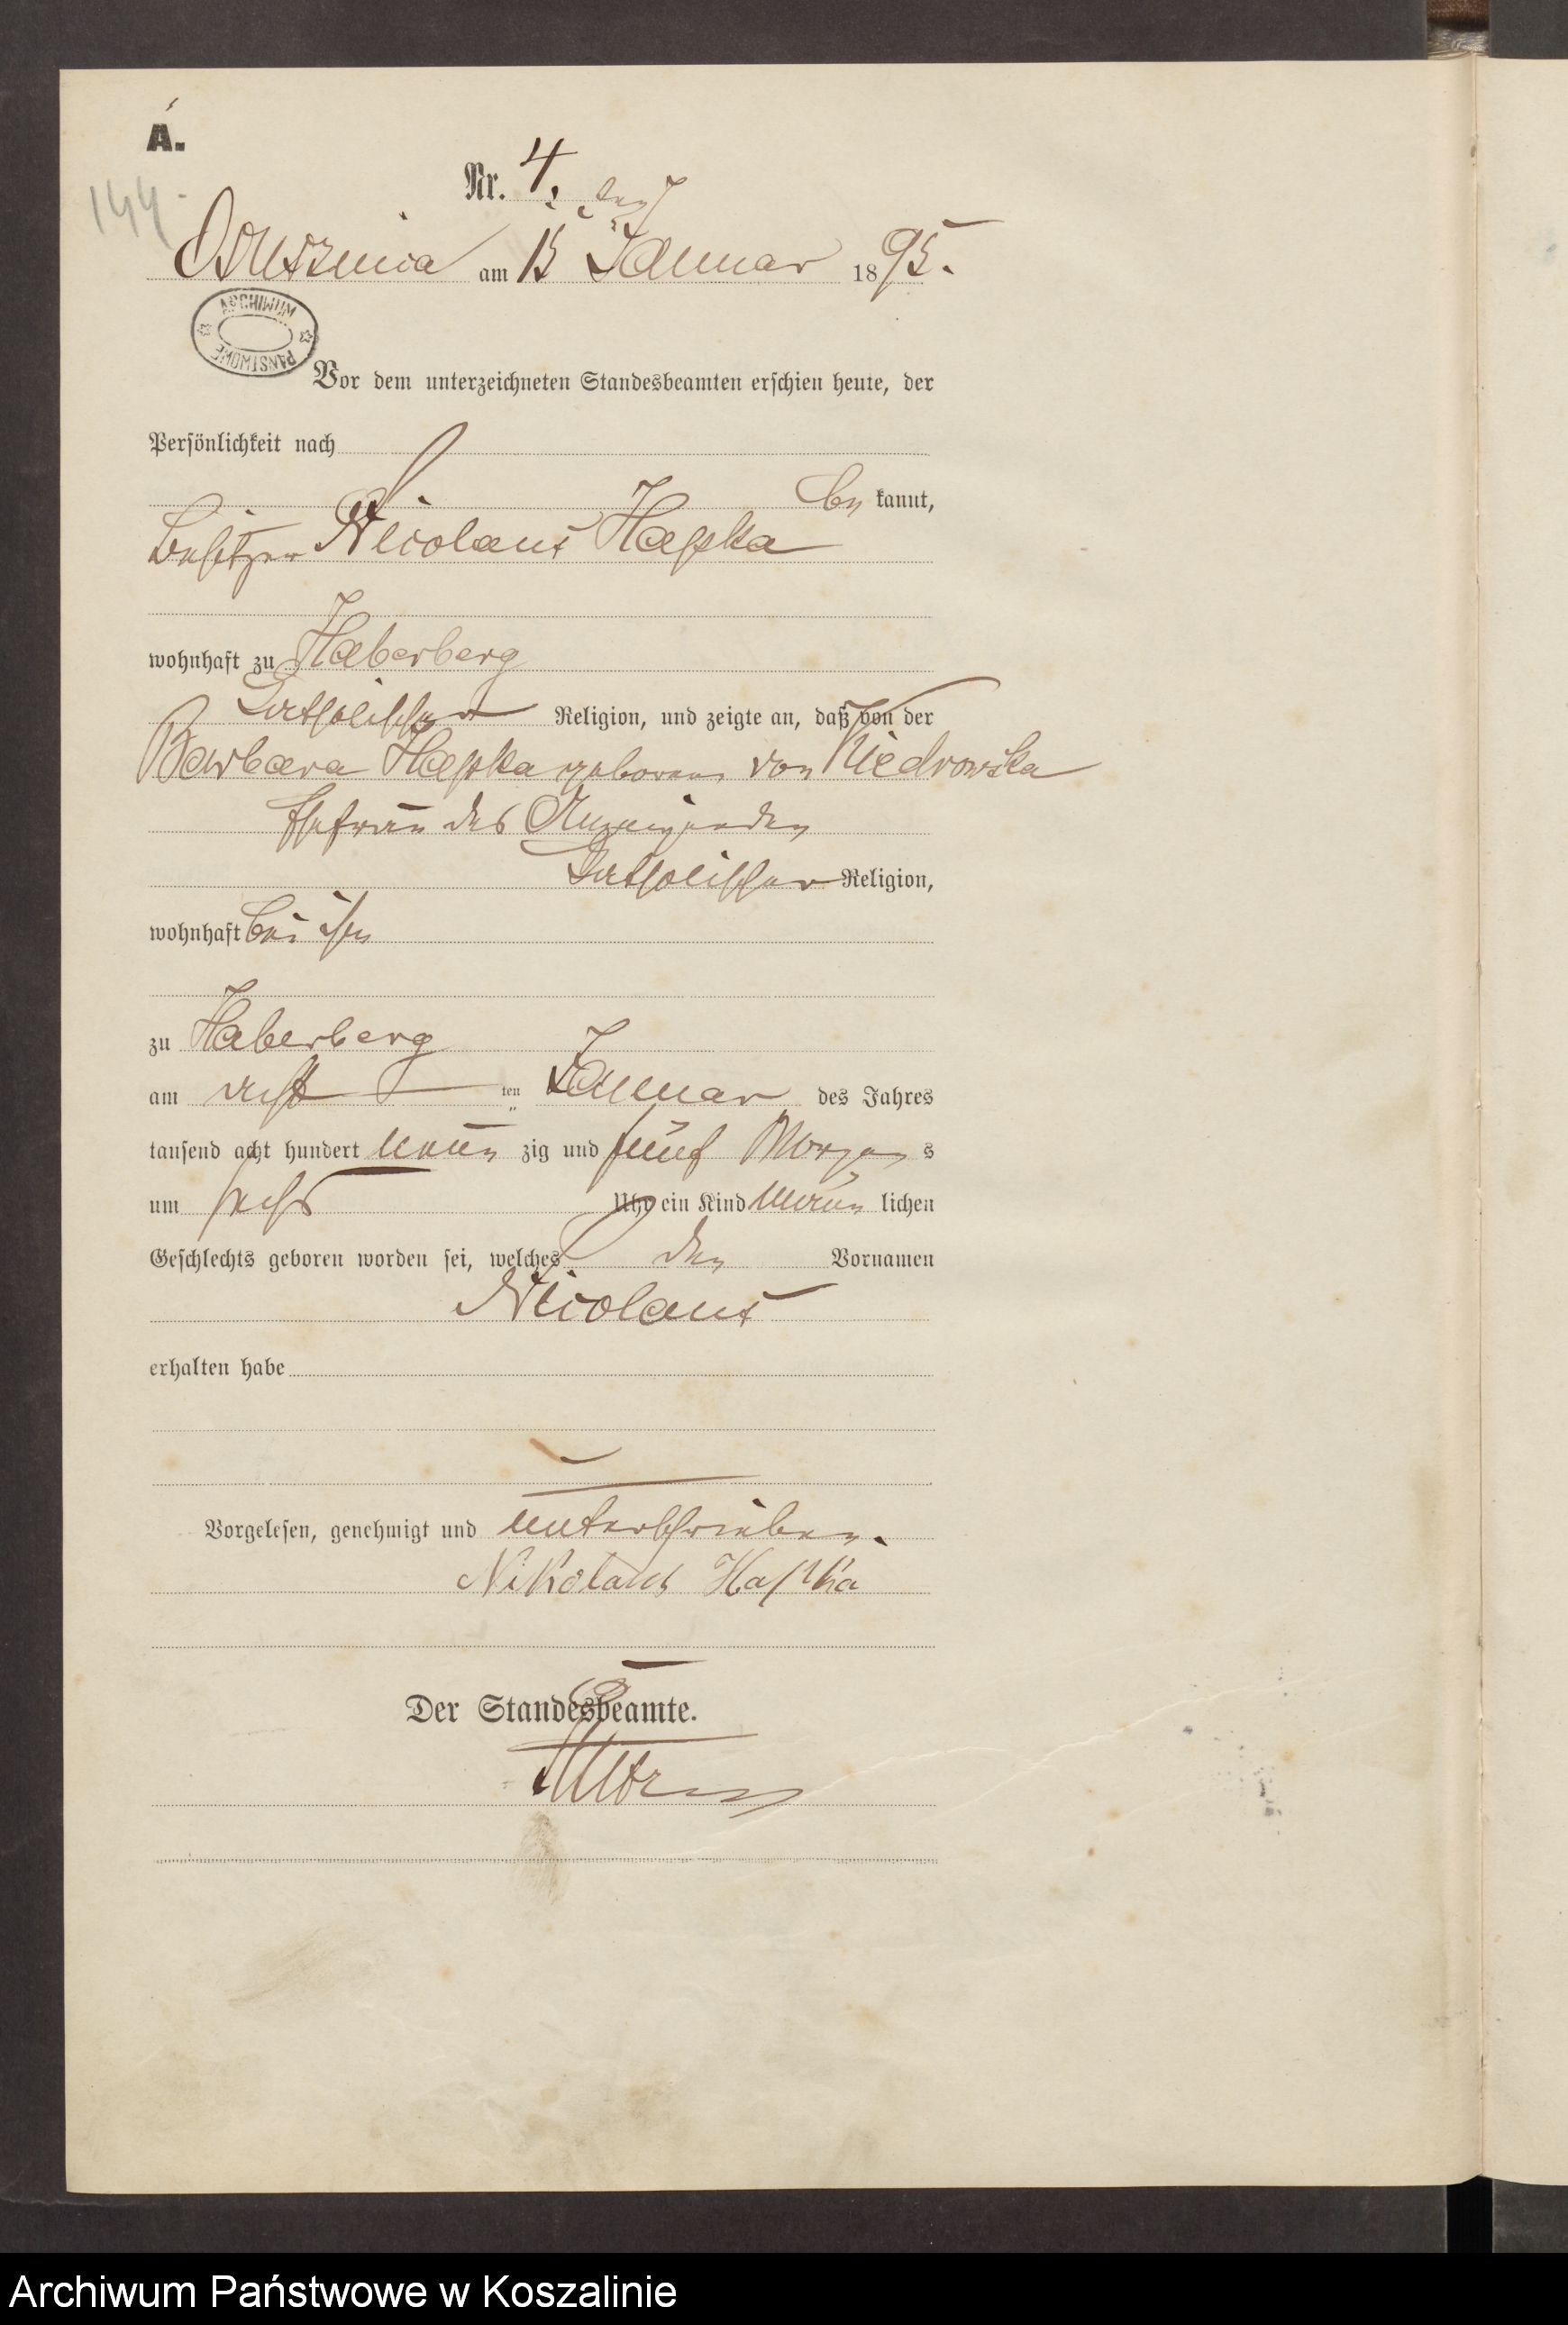 A.
144.
Nr. 4.
Ossusznica am 15 ten Januar 1895.
ARCHIWUM PAŃSTWOWE
Vor dem unterzeichneten Standesbeamten erschien heute, der
Persönlichkeit nach
be kannt,
Besitzer Nicolaus Hapka
wohnhaft zu Haberberg
katholischer Religion, und zeigte an, daß von der
Barbara Hapka geborene von Kiedrowska
Ehefrau des Anzeigenden
katholischer Religion,
wohnhaft bei ihm
zu Haberberg
am acht ten Januar des Jahres
tausend acht hundert neun zig und fünf Morgens
um sechs Uhr ein Kind männ lichen
Geschlechts geboren worden sei, welches den Vornamen
Nicolaus
erhalten habe
Vorgelesen, genehmigt und unterschrieben.
Nikolaus Hapka
Der Standesbeamte.
Archiwum Państwowe w Koszalinie